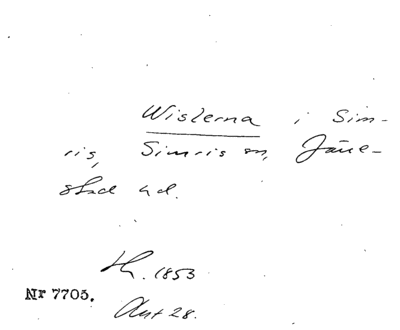 Wislerna i Sim-
ris, Simris sn, Järre-
stad hd.
Lh. 1853
Nr 7705.
Akt 28.